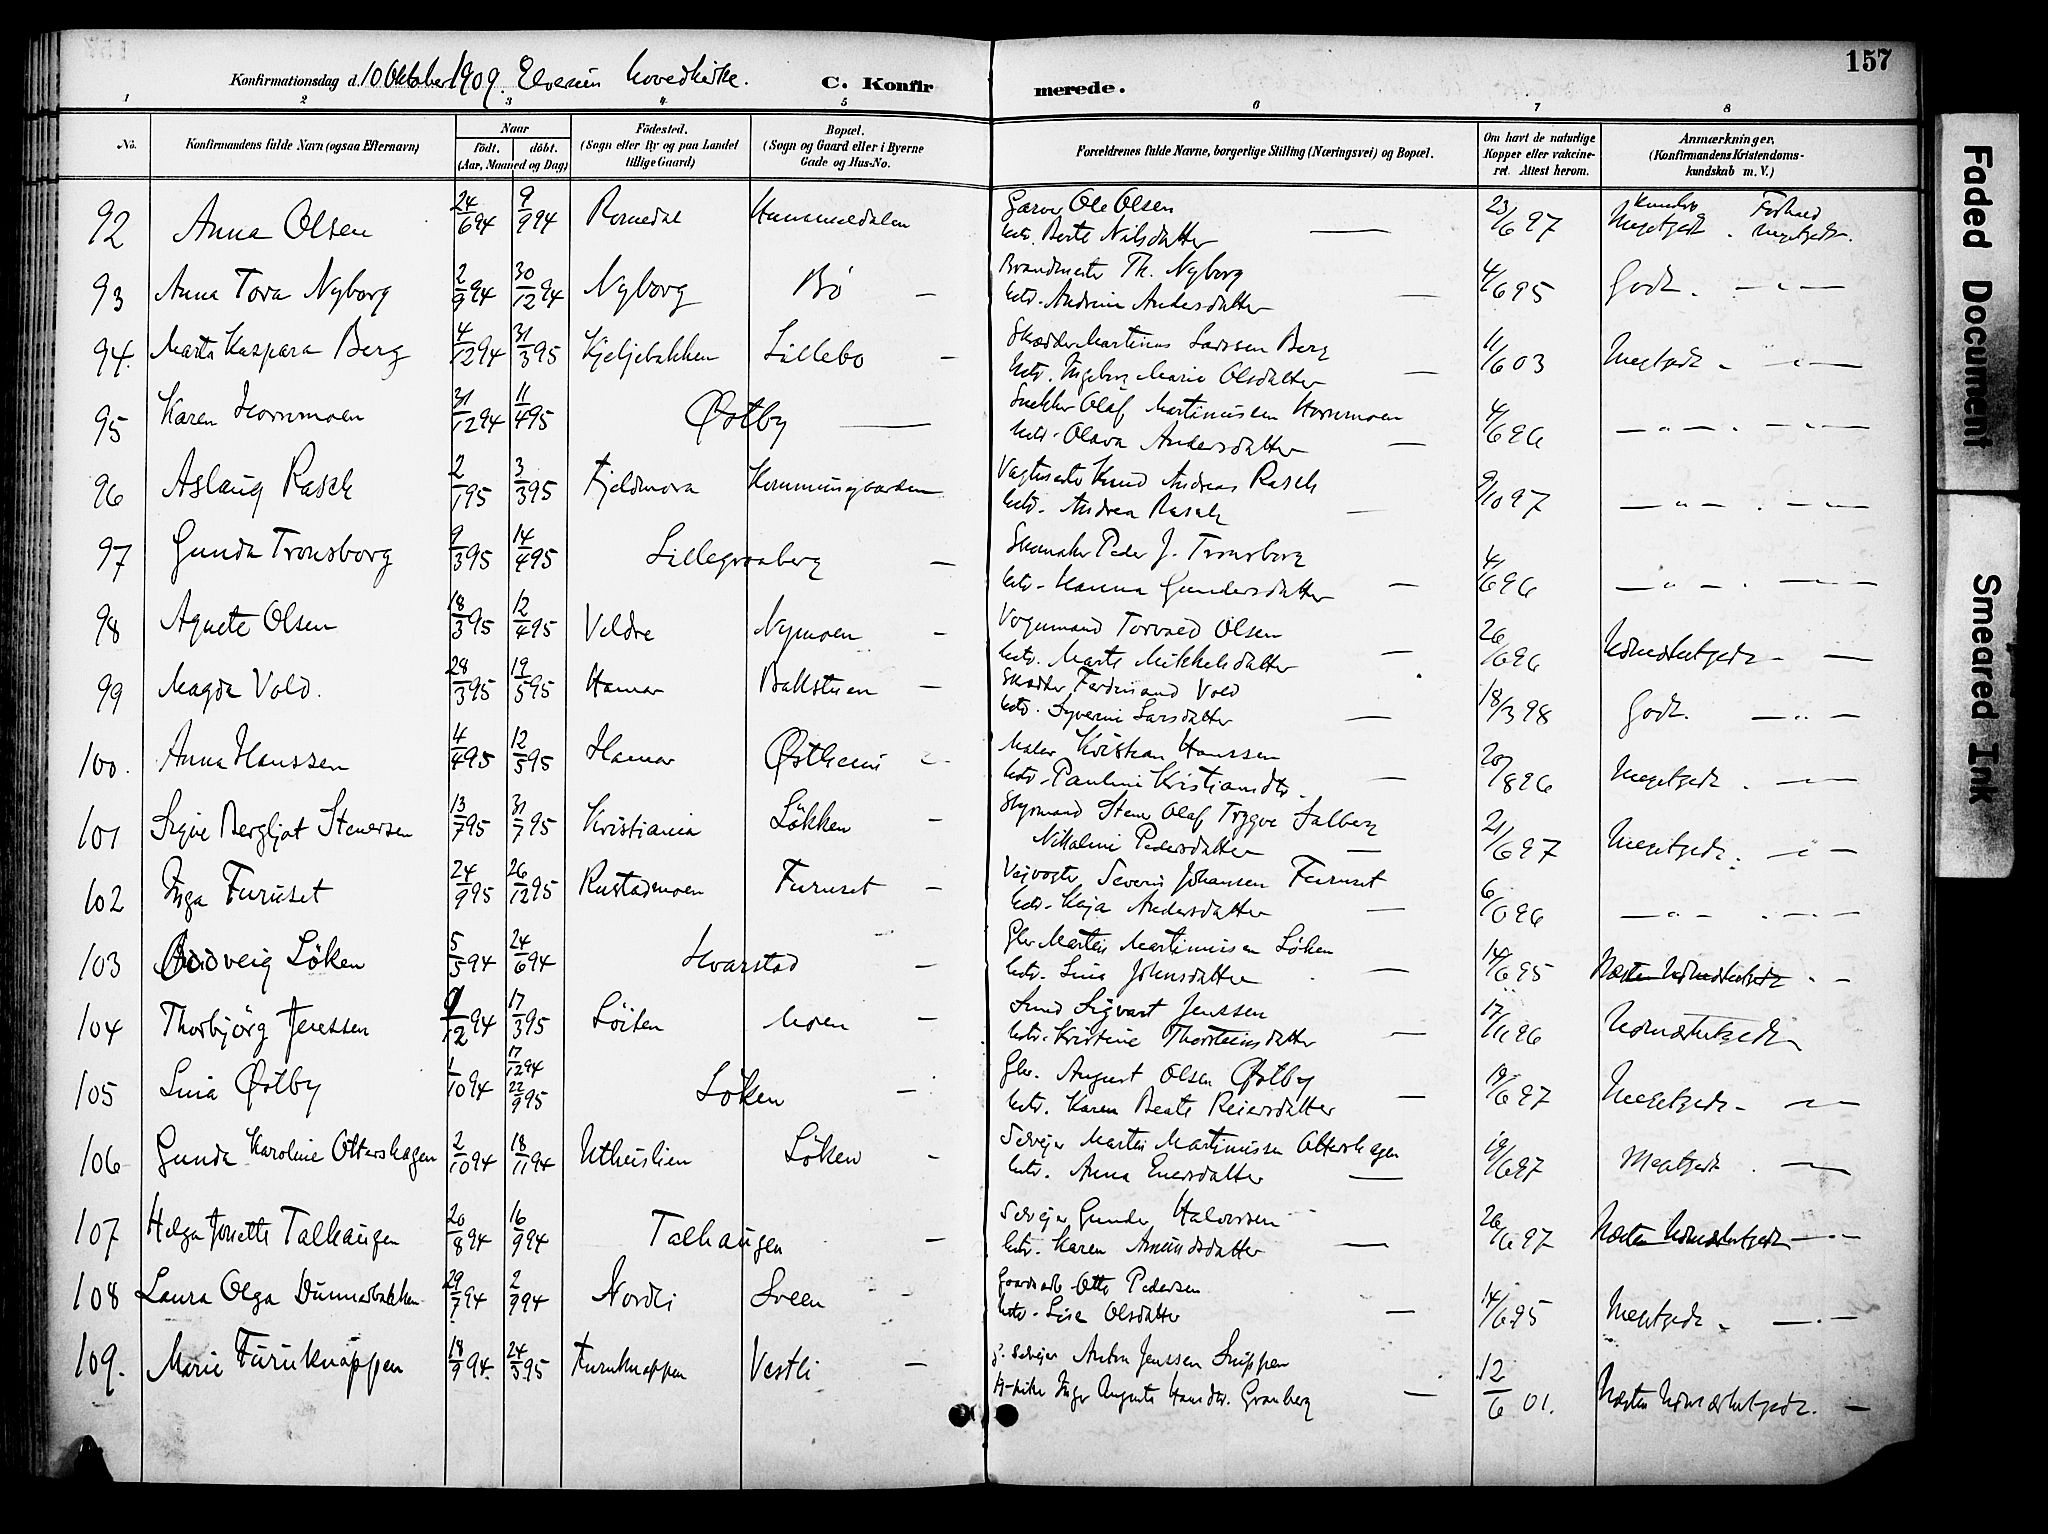 157
Konfirmationsdag d. 10 Oktober 1909. Elverum Hovedkirke. C. Konfirmerede.
1 2 3 4 5 6 7 8
No. Konfirmandens fulde Navn (ogsaa Efternavn) Naar födt. döbt. (Aar, Maaned og Dag) Födested. (Sogn eller By og paa Landet tillige Gaard) Bopæl. (Sogn og Gaard eller i Byerne Gade og Hus-No. Forældrenes fulde Navne, borgerlige Stilling (Næringsvei) og Bopæl. Om havt de naturlige Kopper eller vakcineret. Attest herom. Anmærkninger, (Konfirmandens Kristendomskundskab m. V.)
92 Anna Olsen 24/6 94 9/9 94 Romedal Hummeldalen Garver Ole Olsen 23/6 97 Kundsk. Forhold
Berte Nilsdatter Megetgodt. Megetgodt.
93 Anna Tora Nyborg 2/9 94 30/12 94 Nyborg Bö — Brandmester Th. Nyborg 4/6 95 Godt. — " —
Andrine Andersdatter —
94. Marte Kaspara Berg 4/12 94 31/3 95 Kjeljebakken Lillebo — Skrædder Martinus Larssen Berg 11/6 03 Megetgodt. — " —
Ingeborg Marie Olsdatter —
95 Karen Hornmoen 31/12 94 11/4 95 Østby — Snekker Olaf Martinussen Hornmoen 4/6 96 — " — . — " —
Olava Andersdatter —
96 Aslaug Rasch 2/1 95 3/3 95 Fjeldmora Kommunegaarden Vagtmester Knud Andreas Rasch 9/10 97 — " — . — " —
Andrea Rasch —
97 Gunda Tronsborg 9/3 95 14/4 95 Lillegraaberg — Skomaker Peder J. Tronsborg 4/6 96 — " — . — " —
Hanna Gundersdatter —
98 Agnete Olsen 18/3 95 12/4 95 Veldre Nymoen — Vognmand Torvald Olsen 26/6 96 Udmærketgodt. —
Marte Mikkelsdatter —
99 Magda Vold. 28/3 95 19/5 95 Hamar Bakstuen — Skrædder Ferdinand Vold 18/3 98 Godt. — " —
Syverine Larsdatter —
100. Anna Hanssen 4/4 95 12/5 95 Hamar Østheim Maler Kristian Hanssen 20/8 96 Megetgodt. — " —
Pauline Kristiansdtr. —
101 Signe Bergljot Stenersen 13/7 95 31/7 95 Kristiania Lökken — Styrmand Stener Olaf Trygve Salberg 21/6 97 Megetgodt. — " —
Nikoline Pedersdatter —
102 Inga Furuset 24/9 95 26/12 95 Rustadmoen Furuset — Veivogter Severin Johansen Furuset 6/6 96 — " — . — " —
Kaja Andersdatter —
103 Oddveig Löken 5/5 94 24/6 94 Hvarstad — Gbr Martin Martinussen Löken 14/6 95 Næsten Udmærketgodt. —
Lina Johnsdatter —
104 Thorbjörg Jenssen 9/12 94 17/3 95 Löiten Moen — Smed Sigvart Jenssen 17/11 96 Udmærketgodt
Kristine Thorsteinsdatter —
105 Lina Østby 1/10 94 17/12 94 22/9 95 Löken — Gbr. August Olsen Østby 19/6 97 Megetgodt. — " —
Karen Beate Reiersdatter —
106 Gunda Karoline Ottershagen 2/10 94 18/11 94 Utheislien Löken — Selveier Martin Martinussen Ottershagen 19/6 97 Megetgodt. — " —
Anna Enersdatter —
107 Helga Josette Talhaugen 20/8 94 16/9 94 Talhaugen — Selveier Gunder Halvorsen 26/6 97 Næsten Udmærketgodt. — " —
Karen Amundsdatter —
108 Laura Olga Dunnerbakken 29/7 94 2/9 94 Nordli Sveen Gaardarb. Otto Pedersen 14/6 95 Megetgodt. — " —
Lise Olsdatter —
109. Marie Furuknappen 18/9 94 24/3 95 Furuknappen Vestli — Selveier Anton Jenssen Snippen 12/6 01. Næsten Udmærketgodt. —
Inger Auguste Hansdtr. Granberg —
Faded Document
Smeared Ink